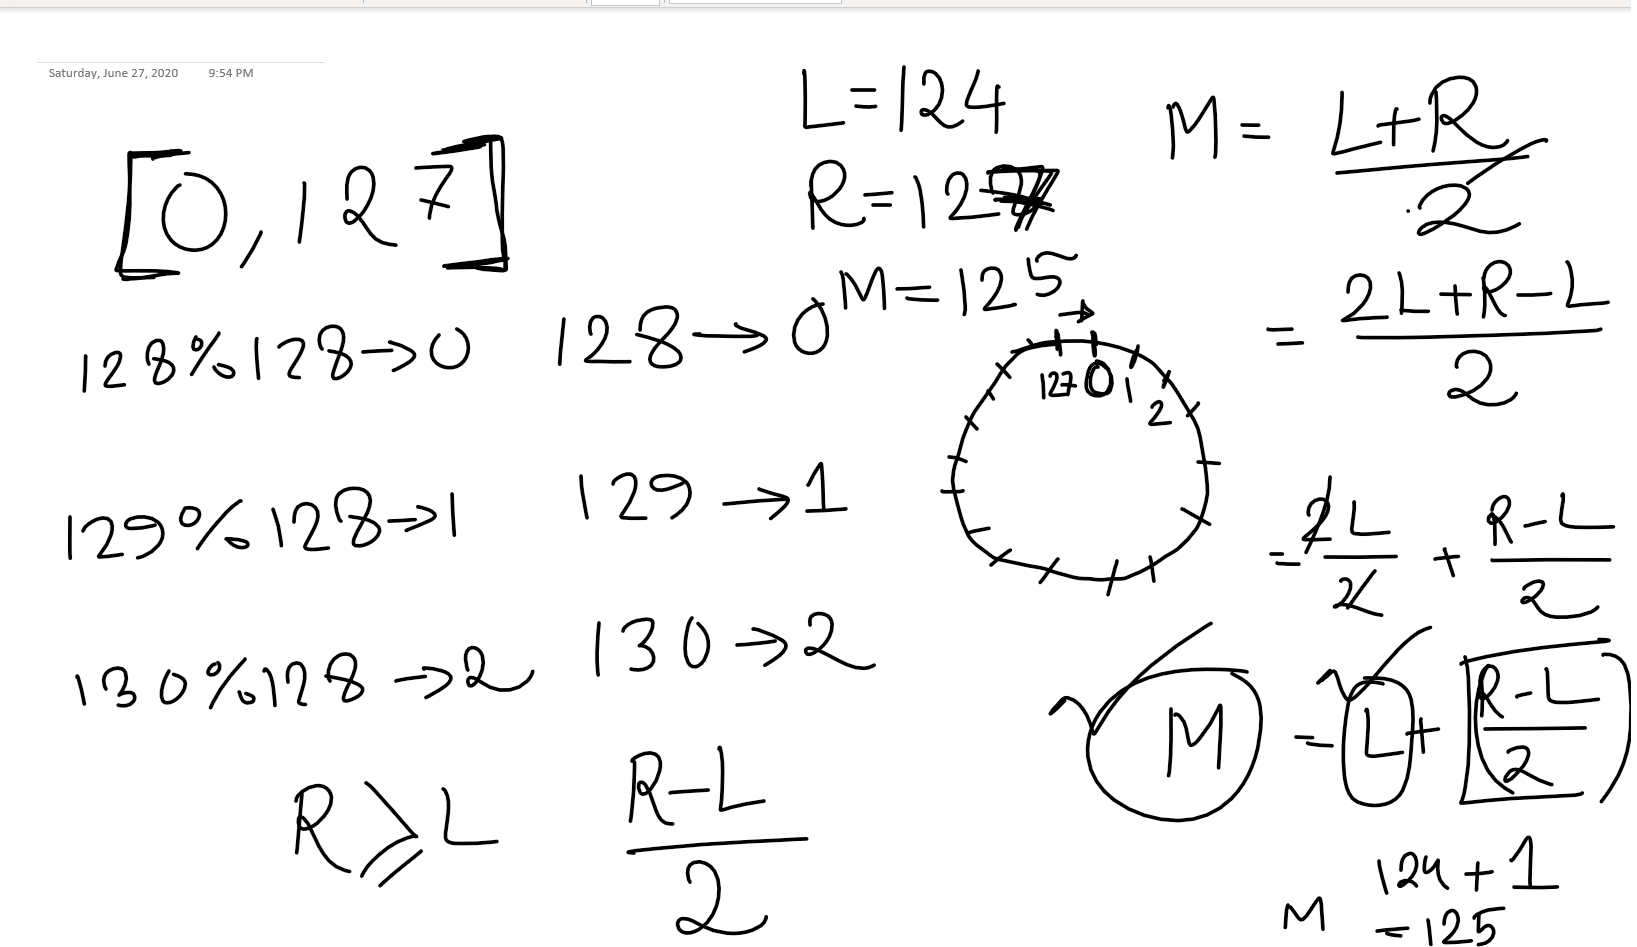 Saturday, June 27, 2020 9:54 PM
[0, 127]
128%128→0
129%128→1
130%128→2
R≥L
128→0
129→1
130→2
R-L
2
L=124
R=127
M=125
→
127 0 1
2
M = L+R
2
= 2L+R-L
2
= 2L + R-L
2 2
M = L+ (R-L)
2
124+1
M =125